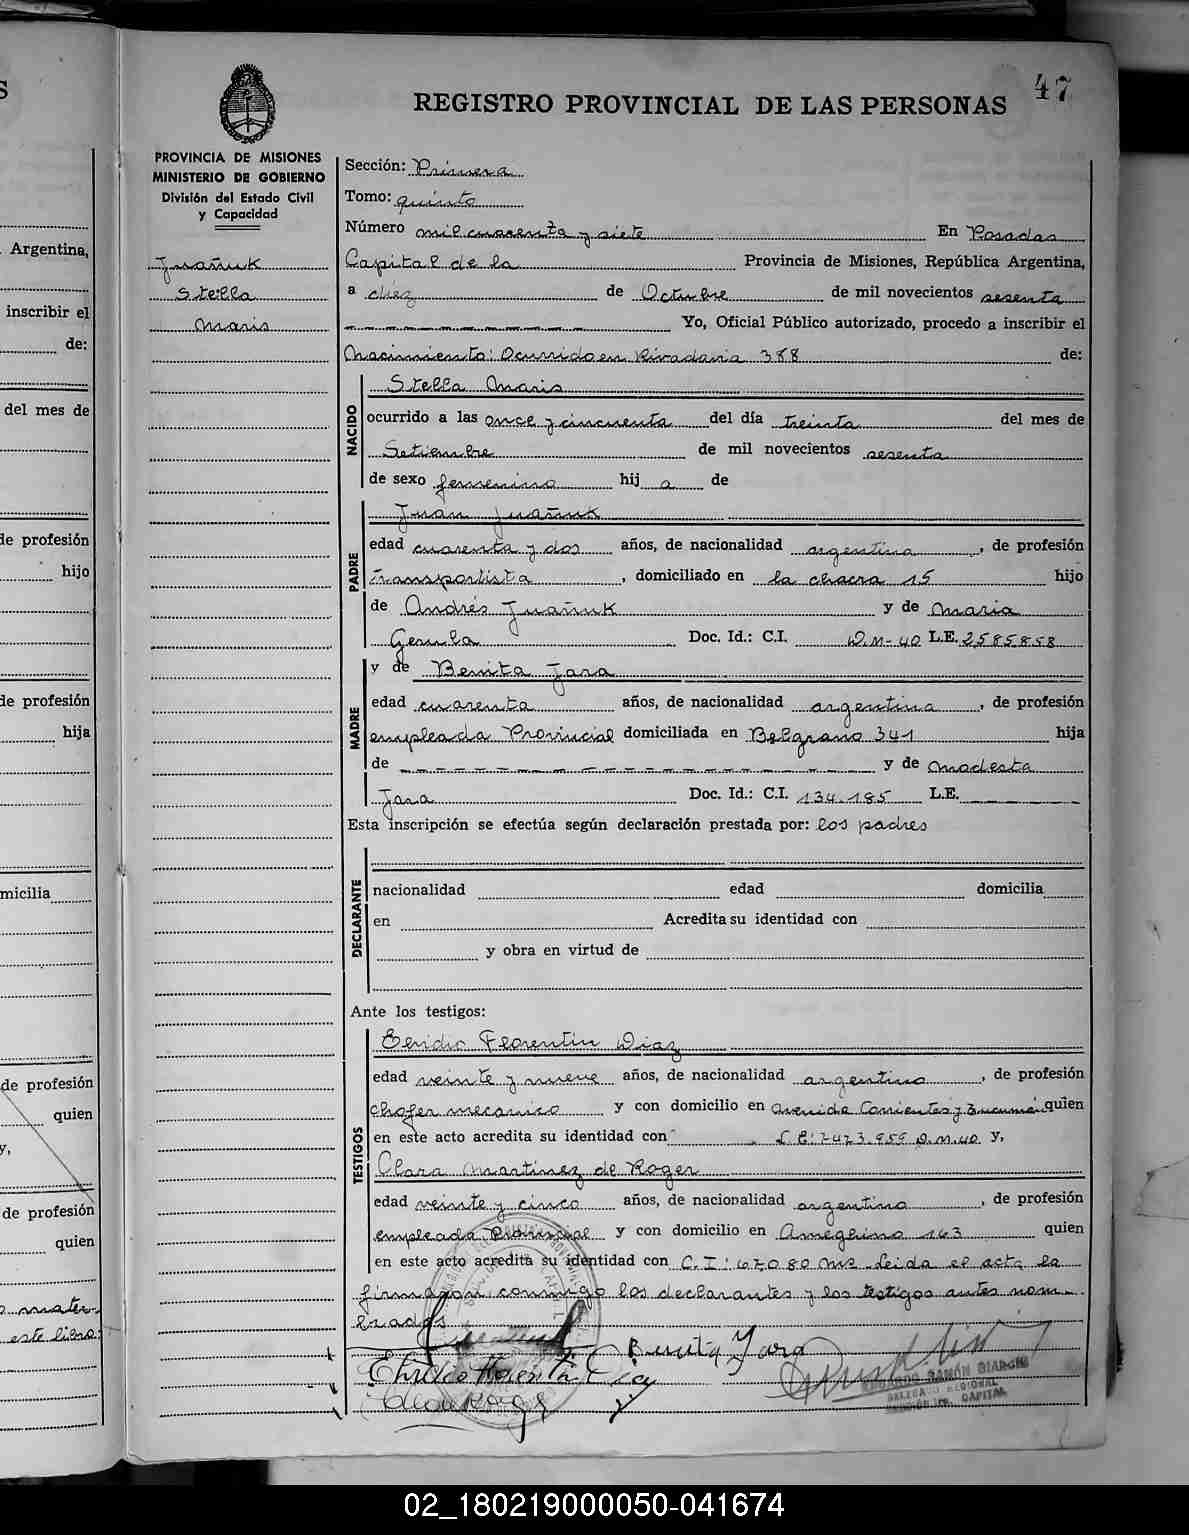 47
REGISTRO PROVINCIAL DE LAS PERSONAS
PROVINCIA DE MISIONES
MINISTERIO DE GOBIERNO
División del Estado Civil
y Capacidad
Juañuk
Stella
Maris
Sección: Primera
Tomo: quinto
Número mil cuarenta y siete En Posadas
Capital de la Provincia de Misiones, República Argentina,
a diez de Octubre de mil novecientos sesenta
Yo, Oficial Público autorizado, procedo a inscribir el
Nacimiento: Ocurrido en Rivadavia 388 de:
NACIDO
Stella Maris
ocurrido a las once y cincuenta del día treinta del mes de
Setiembre de mil novecientos sesenta
de sexo femenino hij a de
PADRE
Juan Juañuk
edad cuarenta y dos años, de nacionalidad argentina, de profesión
transportista, domiciliado en la chacra 15 hijo
de Andrés Juañuk y de Maria
Gerula Doc. Id.: C.I. D.M-40 L.E. 2585858
MADRE
y de Benita Jara
edad cuarenta años, de nacionalidad argentina, de profesión
empleada Provincial domiciliada en Belgrano 341 hija
de y de Modesta
Jara Doc. Id.: C.I. 134.185 L.E.
Esta inscripción se efectúa según declaración prestada por: los padres
DECLARANTE
nacionalidad edad domicilia
en Acredita su identidad con
y obra en virtud de
Ante los testigos:
TESTIGOS
Elvidio Florentin Diaz
edad veinte y nueve años, de nacionalidad argentino, de profesión
chofer mecanico y con domicilio en Avenida Corrientes y Tucumán quien
en este acto acredita su identidad con L.E: 7473.959 D.M.40 y,
Clara Martinez de Roger
edad veinte y cinco años, de nacionalidad argentina, de profesión
empleada Provincial y con domicilio en Ameghino 163 quien
en este acto acredita su identidad con C.I: 67080 Mns. Leida el acta la
firmaron conmigo los declarantes y los testigos antes nom-
brados
Benita Jara
EDUARDO RAMÓN BIARGHI
DELEGADO REGIONAL
SECCIÓN 1ra. CAPITAL
S
Argentina,
inscribir el
de:
del mes de
de profesión
hijo
de profesión
hija
micilia
de profesión
quien
y,
de profesión
quien
este libro:
02_180219000050-041674